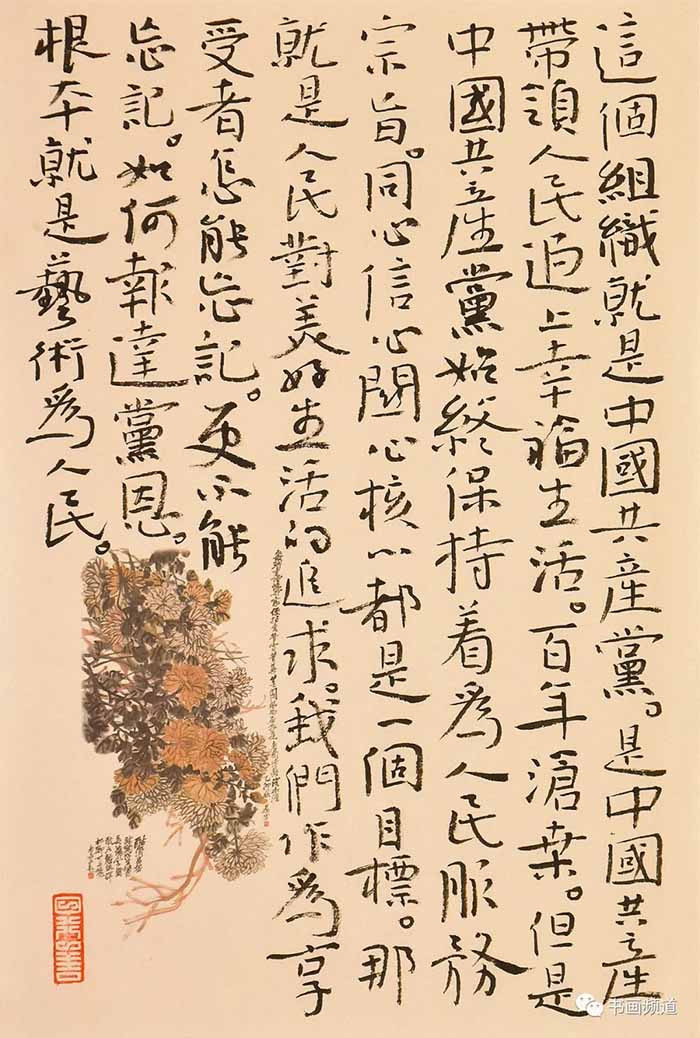 這個組織就是中國共產黨。是中國共產
帶領人民過上幸福生活。百年滄桑。但是
中國共產黨始終保持着爲人民服務
宗旨。同心信心關心核心都是一個目標。那
就是人民對美好生活的追求。我們作爲享
受者怎能忘記。更不能
忘記。如何報達黨恩。
根本就是藝術爲人民。
书画频道